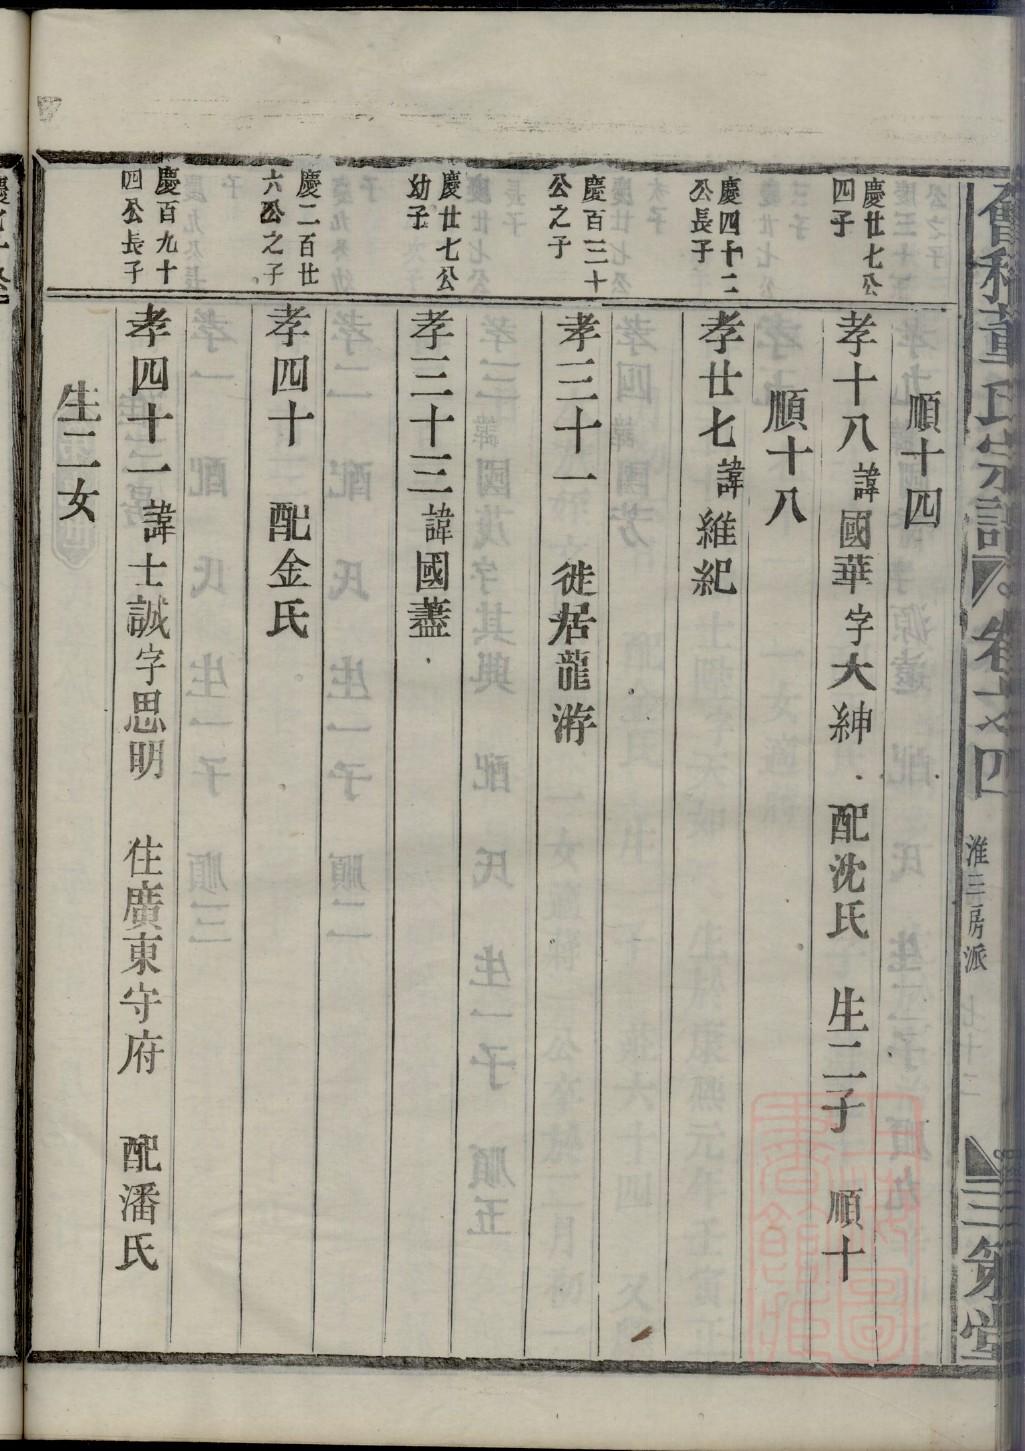 順十四
慶廿七公
四子
孝十八諱國華字大紳 配沈氏 生二子 順十
順十八
慶四十二
公長子
孝廿七諱維紀
慶百三十
公之子
孝三十一 徙居龍游
慶廿七公
幼子
孝三十三諱國藎
慶二百廿
六公之子
孝四十 配金氏
慶百九十
四公長子
孝四十一諱士誠字思明 住廣東守府 配潘氏
生二女
董氏宗譜 卷之四
淮三房派
三策堂